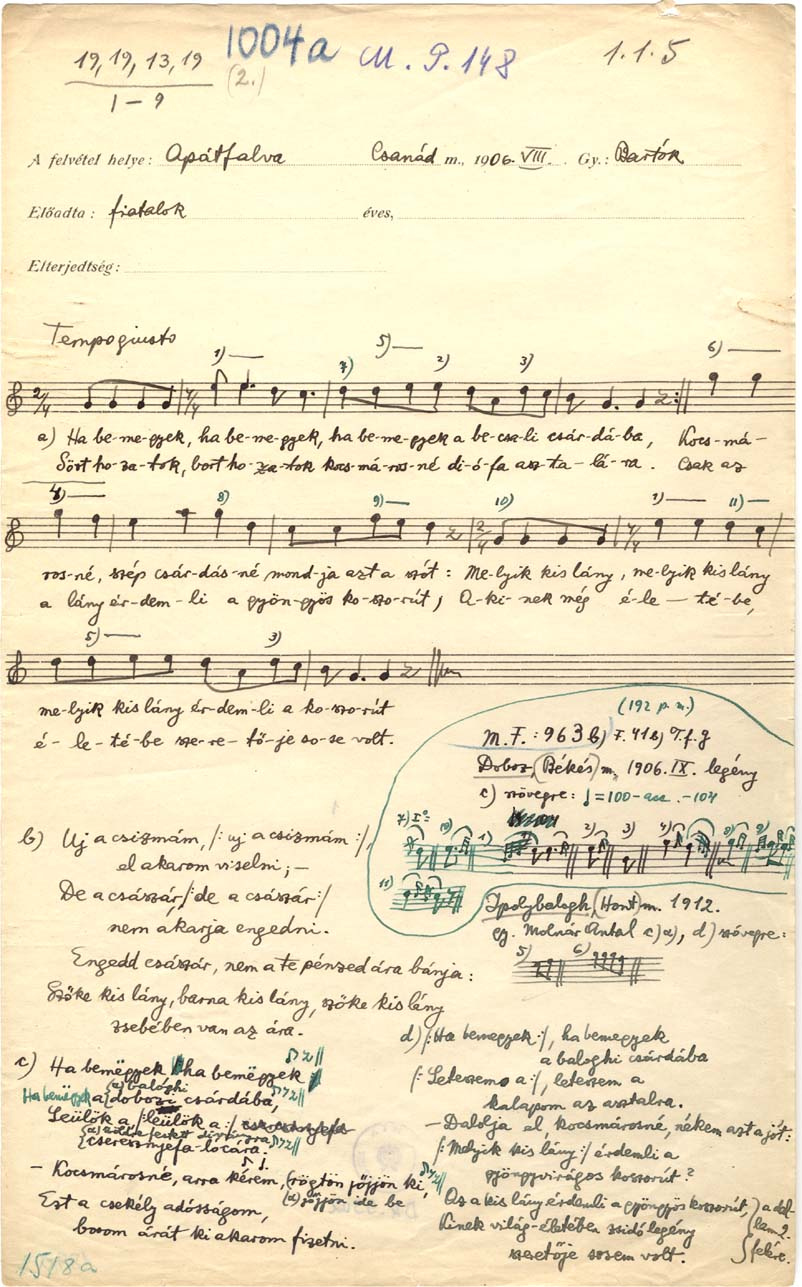 19, 19, 13, 19
1 - 9
1004a
(2.)
M. P. 148
1.1.5
A felvétel helye: Apátfalva Csanád m., 1906. VIII. Gy.: Bartók
Előadta: fiatalok éves,
Elterjedtség:
Tempo giusto
1) 7) 5) 2) 3) 6)
2/4 4/4
a) Ha be-me-gyek, ha be-me-gyek, ha be-me-gyek a be-csa-li csár-dá-ba, Kocs-má-
Sört ho-za-tok, bort ho-za-tok kocs-má-ros-né di-ó-fa asz-ta-lá-ra. Csak az
4) 8) 9) 10) 1) 11)
2/4 4/4
ros-né, szép csár-dás-né mond-ja azt a szót: Me-lyik kis lány, me-lyik kis lány
a lány ér-dem-li a gyön-gyös ko-szo-rút, A-ki-nek még é-le-té-be,
5) 3)
me-lyik kis lány ér-dem-li a ko-szo-rút
é-le-té-be sze-re-tő-je so-se volt.
(192 p. m.)
M. F.: 963 b)
Doboz, (Békés) m, 1906. IX. legény
c) szövegre: ♩=100- -104
7) 10) 1) 2) 3) 4) 8) 9)
11)
Ipolybalogh, (Hont) m. 1912.
gy. Molnár Antal c) a), d) szövegre:
5) 6)
b) Uj a csizmám, /: uj a csizmám :/,
el akarom viselni; –
De a császár, /: de a császár :/
nem akarja engedni.
Engedd császár, nem a te pénzed ára bánja:
Szőke kis lány, barna kis lány, szőke kis lány
zsebében van az ára.
c) Ha bemëgyek ha bemëgyek
Ha bemëgyek a (a) balóghi
dobozi csárdába,
Leülök a /: leülök a :/
cseresznyefa-lócára.
– Kocsmárosné, arra kérem, (rögtön jőjjön ki,
(a) jőjjön ide be
Ezt a csekély adósságom,
borom árát ki akarom fizetni.
d) /: Ha bemegyek :/, ha bemegyek
a baloghi csárdába
/: Leteszem a :/, leteszem a
kalapom az asztalra.
– Dalolja el, kocsmárosné, nékem azt a jót:
/: Melyik kis lány :/ érdemli a
gyöngyvirágos koszorút?
Az a kis lány érdemli a gyöngyös koszorút,
Kinek világ-életében zsidó legény
szeretője sosem volt.
a dal-
lam 2.
felére.
1518a